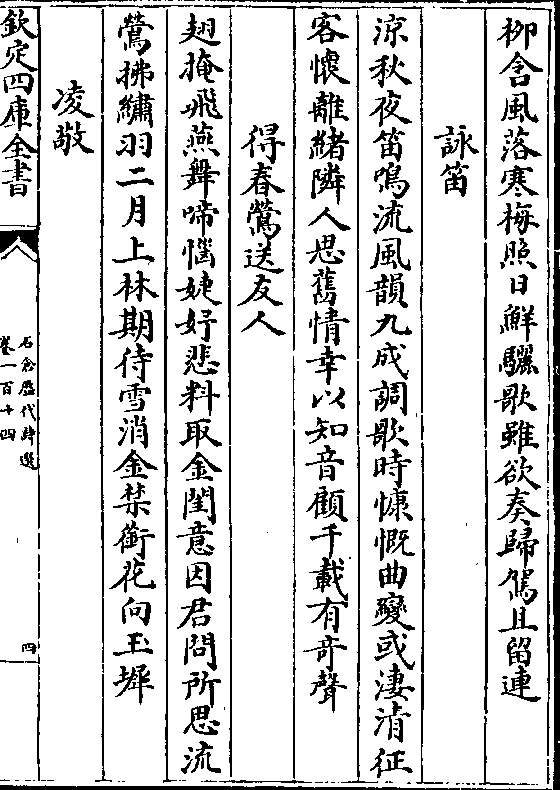 柳含風落寒梅照日鮮驪歌雖欲奏歸駕且留連
詠笛
涼秋夜笛鳴流風韻九成調歌時慷慨曲變或淒清征
客懷離緒隣人思舊情幸以知音顧千載有竒聲
得春鶯送友人
翅掩飛燕舞啼惱婕妤悲料取金閨意因君問所思流
鶯拂繡羽二月上林期待雪消金禁銜花向玉墀
凌敬
欽定四庫全書
石倉歷代詩選
卷一百十四
四